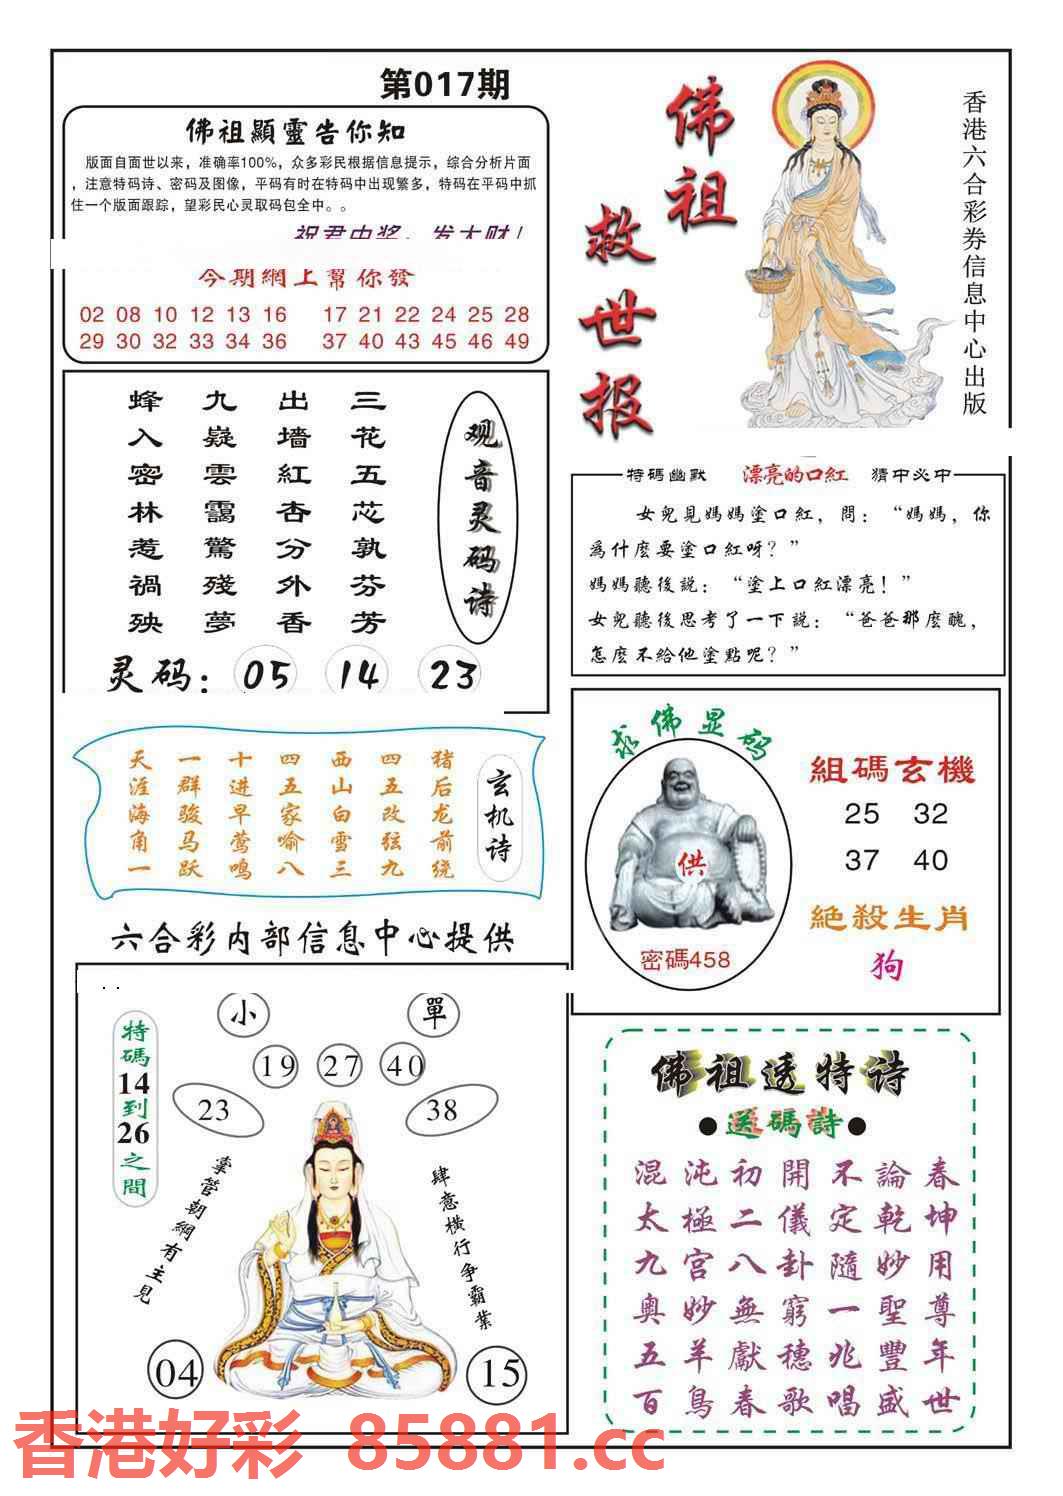 第017期
佛祖顯靈告你知
版面自面世以来，准确率100%，众多彩民根据信息提示，综合分析片面
，注意特码诗、密码及图像，平码有时在特码中出现繁多，特码在平码中抓
住一个版面跟踪，望彩民心灵取码包全中。。
祝君中奖，发大财！
今期網上幫你發
02 08 10 12 13 16 17 21 22 24 25 28
29 30 32 33 34 36 37 40 43 45 46 49
佛祖
救世报
香港六合彩券信息中心出版
观音灵码诗
三花五芯孰芬芳
出墙紅杏分外香
九嶷雲靄驚殘夢
蜂入密林惹禍殃
灵码：05 14 23
特碼幽默 漂亮的口紅 猜中必中
女兒見媽媽塗口紅，問：“媽媽，你
爲什麼要塗口紅呀？”
媽媽聽後説：“塗上口紅漂亮！”
女兒聽後思考了一下説：“爸爸那麼醜，
怎麼不給他塗點呢？”
玄机诗
猪后龙前绕
四五改弦九
西山白雪三
四五家喻八
十进早莺鸣
一群骏马跃
天涯海角一
求佛显码
供
密碼458
組碼玄機
25 32
37 40
絶殺生肖
狗
六合彩内部信息中心提供
小 單
19 27 40
23 38
特碼14到26之間
掌管朝綱有主見
肆意横行争霸業
04 15
佛祖透特诗
●送碼詩●
混沌初開不論春
太極二儀定乾坤
九宮八卦隨妙用
奥妙無窮一聖尊
五羊獻穗兆豐年
百鳥春歌唱盛世
香港好彩 85881.cc